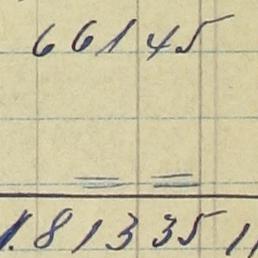 661 45
1.813 35